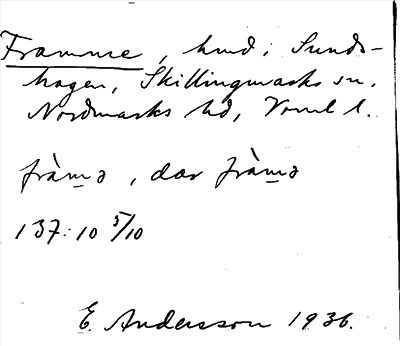 Framme, hmd i Sunds-
hagen, Skillingmarks sn.
Nordmarks hd, Vrml l.
fràm̲ə, dar fràm̲ə
137:10 5/10
E. Andersson 1936.